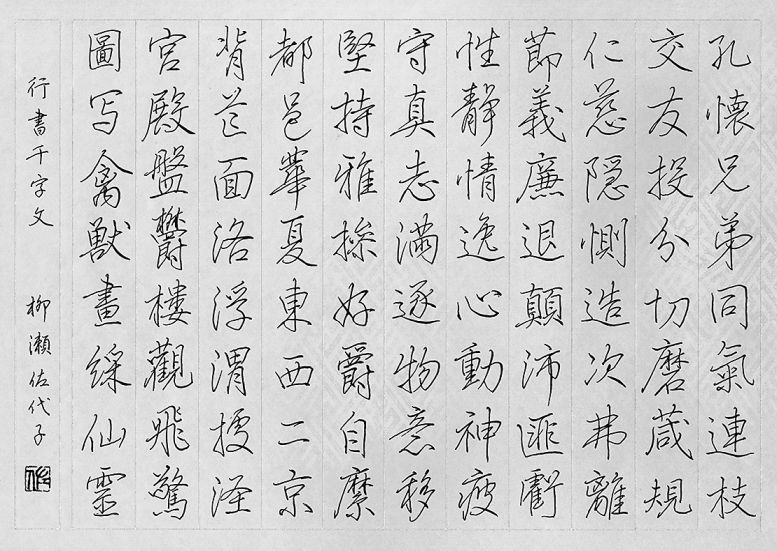 孔懐兄弟同氣連枝
交友投分切磨葴規
仁慈隠惻造次弗離
莭義廉退顛沛匪虧
性靜情逸心動神疲
守真志満逐物意移
堅持雅操好爵自縻
都邑華夏東西二京
背芒面洛浮渭據泾
宮殿盤鬱樓觀飛驚
圖写禽獣畫綵仙霊
行書千字文 柳瀬佐代子